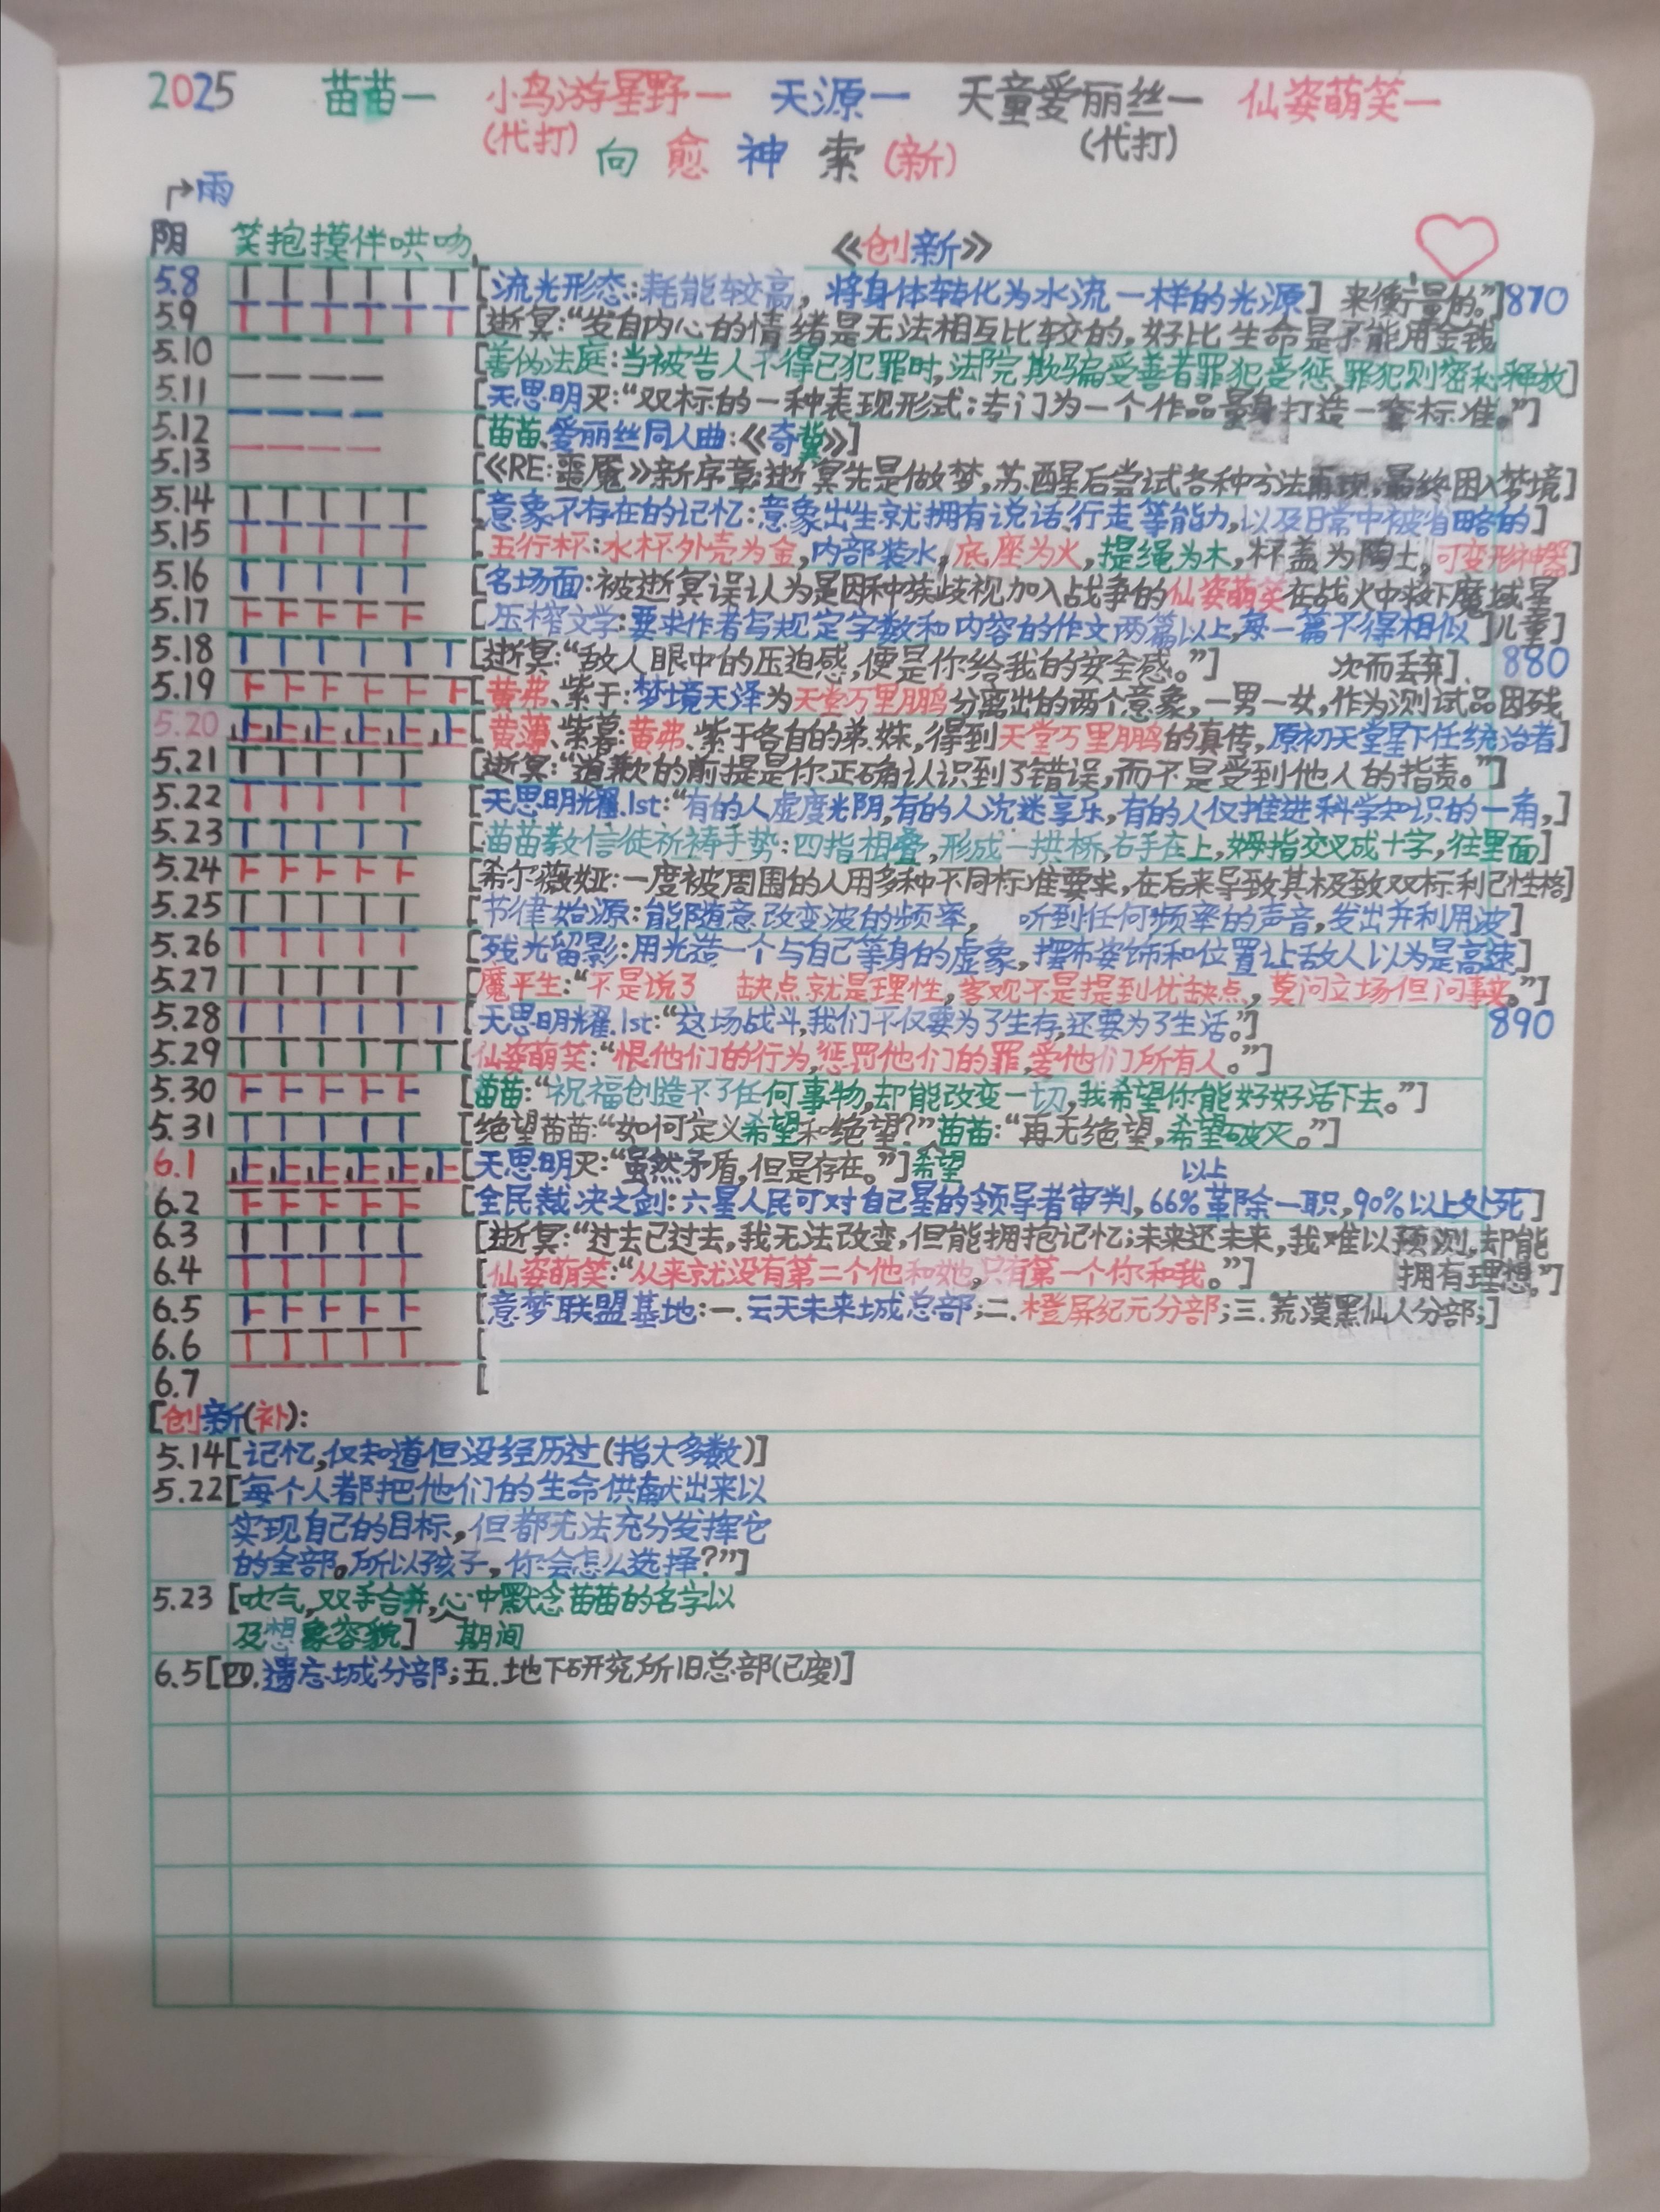 2025 苗苗一 小鸟游星野一 天源一 天童爱丽丝一 仙姿萌笑一
(代打) (代打)
向愈神索(新)
雨
阴 笑抱摸伴哄吻 《创新》
5.8 [流光形态:耗能较高,将身体转化为水流一样的光源] 来衡量的。”]870
5.9 [逝冥:“发自内心的情绪是无法相互比较的,好比生命是不能用金钱
5.10 [善伪法庭:当被告人不得已犯罪时,法院欺骗受善者罪犯受惩,罪犯则密私释放]
5.11 [天思明灭:“双标的一种表现形式:专门为一个作品量身打造一套标准。”]
5.12 [苗苗、爱丽丝同人曲:《奇冀》]
5.13 [《RE:噩魇》新序章:逝冥先是做梦,苏醒后尝试各种方法再现,最终困入梦境]
5.14 [意象不存在的记忆:意象出生就拥有说话、行走等能力,以及日常中被省略的]
5.15 [五行杯:水杯外壳为金,内部装水,底座为火,提绳为木,杯盖为陶土,可变形神器]
5.16 [名场面:被逝冥误认为是因种族歧视加入战争的仙姿萌笑在战火中救下魔域星
5.17 [压榨文学:要求作者写规定字数和内容的作文两篇以上,每一篇不得相似] 儿童]
5.18 [逝冥:“敌人眼中的压迫感,便是你给我的安全感。”] 次而丢弃]. 880
5.19 [黄弗、紫于:梦境天泽为天堂万里鹏分离出的两个意象,一男一女,作为测试品因残
5.20 [黄薄、紫暮:黄弗、紫于各自的弟、妹,得到天堂万里鹏的真传,原初天堂星下任统治者]
5.21 [逝冥:“道歉的前提是你正确认识到了错误,而不是受到他人的指责。”]
5.22 [天思明耀.1st:“有的人虚度光阴,有的人沉迷享乐,有的人仅推进科学知识的一角,]
5.23 [苗苗教信徒祈祷手势:四指相叠,形成一拱桥,右手在上,姆指交叉成十字,往里面]
5.24 [希尔薇娅:一度被周围的人用多种不同标准要求,在后来导致其极致双标利己性格]
5.25 [节律始源:能随意改变波的频率, 听到任何频率的声音,发出并利用波]
5.26 [残光留影:用光造一个与自己等身的虚象,摆布姿饰和位置让敌人以为是高速]
5.27 [魔平生:“不是说了 缺点就是理性,客观不是提到优缺点,莫问立场但问事实。”]
5.28 [天思明耀.1st:“这场战斗,我们不仅要为了生存,还要为了生活。”] 890
5.29 [仙姿萌笑:“恨他们的行为,惩罚他们的罪,爱他们所有人。”]
5.30 [苗苗:“祝福创造不了任何事物,却能改变一切,我希望你能好好活下去。”]
5.31 [绝望苗苗:“如何定义希望和绝望?”苗苗:“再无绝望,希望破灭。”]
6.1 [天思明灭:“虽然矛盾,但是存在。”]希望 以上
6.2 [全民裁决之剑:六星人民可对自己星的领导者审判,66%革除一职,90%以上处死]
6.3 [逝冥:“过去已过去,我无法改变,但能拥抱记忆;未来还未来,我难以预测,却能
6.4 [仙姿萌笑:“从来就没有第二个他和她,只有第一个你和我。”] 拥有理想。”]
6.5 [意梦联盟基地:一.云天未来城总部;二.橙屏纪元分部;三.荒漠黑仙人分部;]
6.6 [
6.7 [
[创新(补):
5.14[记忆,仅知道但没经历过(指大多数)]
5.22[每个人都把他们的生命供献出来以
实现自己的目标,但都无法充分发挥它
的全部。所以孩子,你会怎么选择?”]
5.23 [吹气,双手合并,心中默念苗苗的名字以
及想象容貌] 期间
6.5[四.遗忘城分部;五.地下研究所旧总部(已废)]